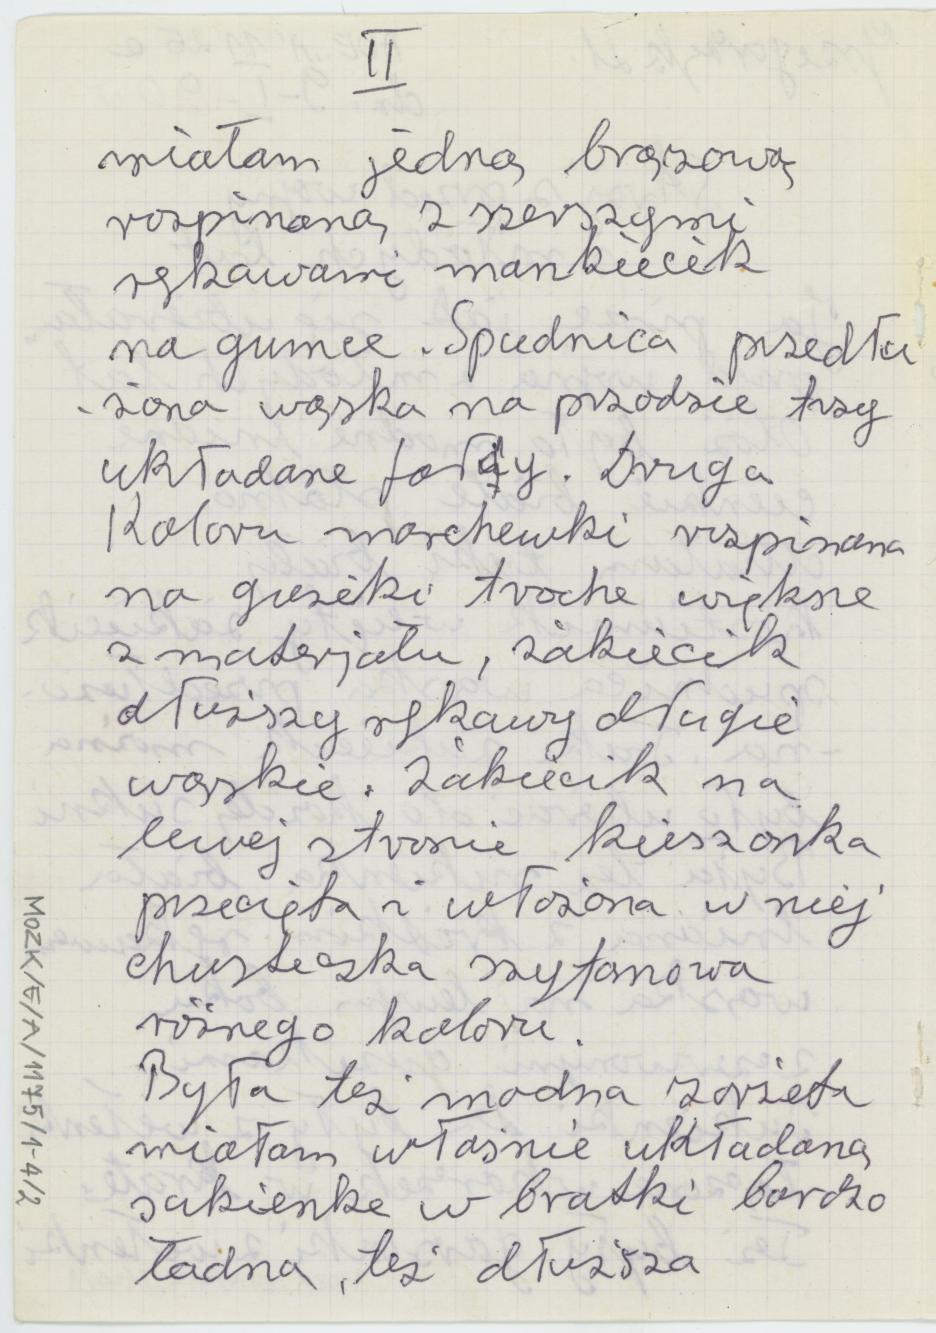 II
miałam jedną brązową
rozpinaną z szerszymi
rękawami mankiecik
na gumce. Spudnica przedłu
-żona wąska na przodzie trzy
układane fałdy. Druga
Koloru marchewki rozpinana
na guziki troche większe
z materjału, żakiecik
dłuższy rękawy długie
wąskie. Żakiecik na
lewej stronie kieszonka
przecięta i włożona w niej
chusteczka szyfonowa
różnego koloru.
Była też modna żorżeta
miałam właśnie układaną
sukienke w bratki bardzo
ładna, też dłuższa
MOZK/E/A/1175/1-4/2